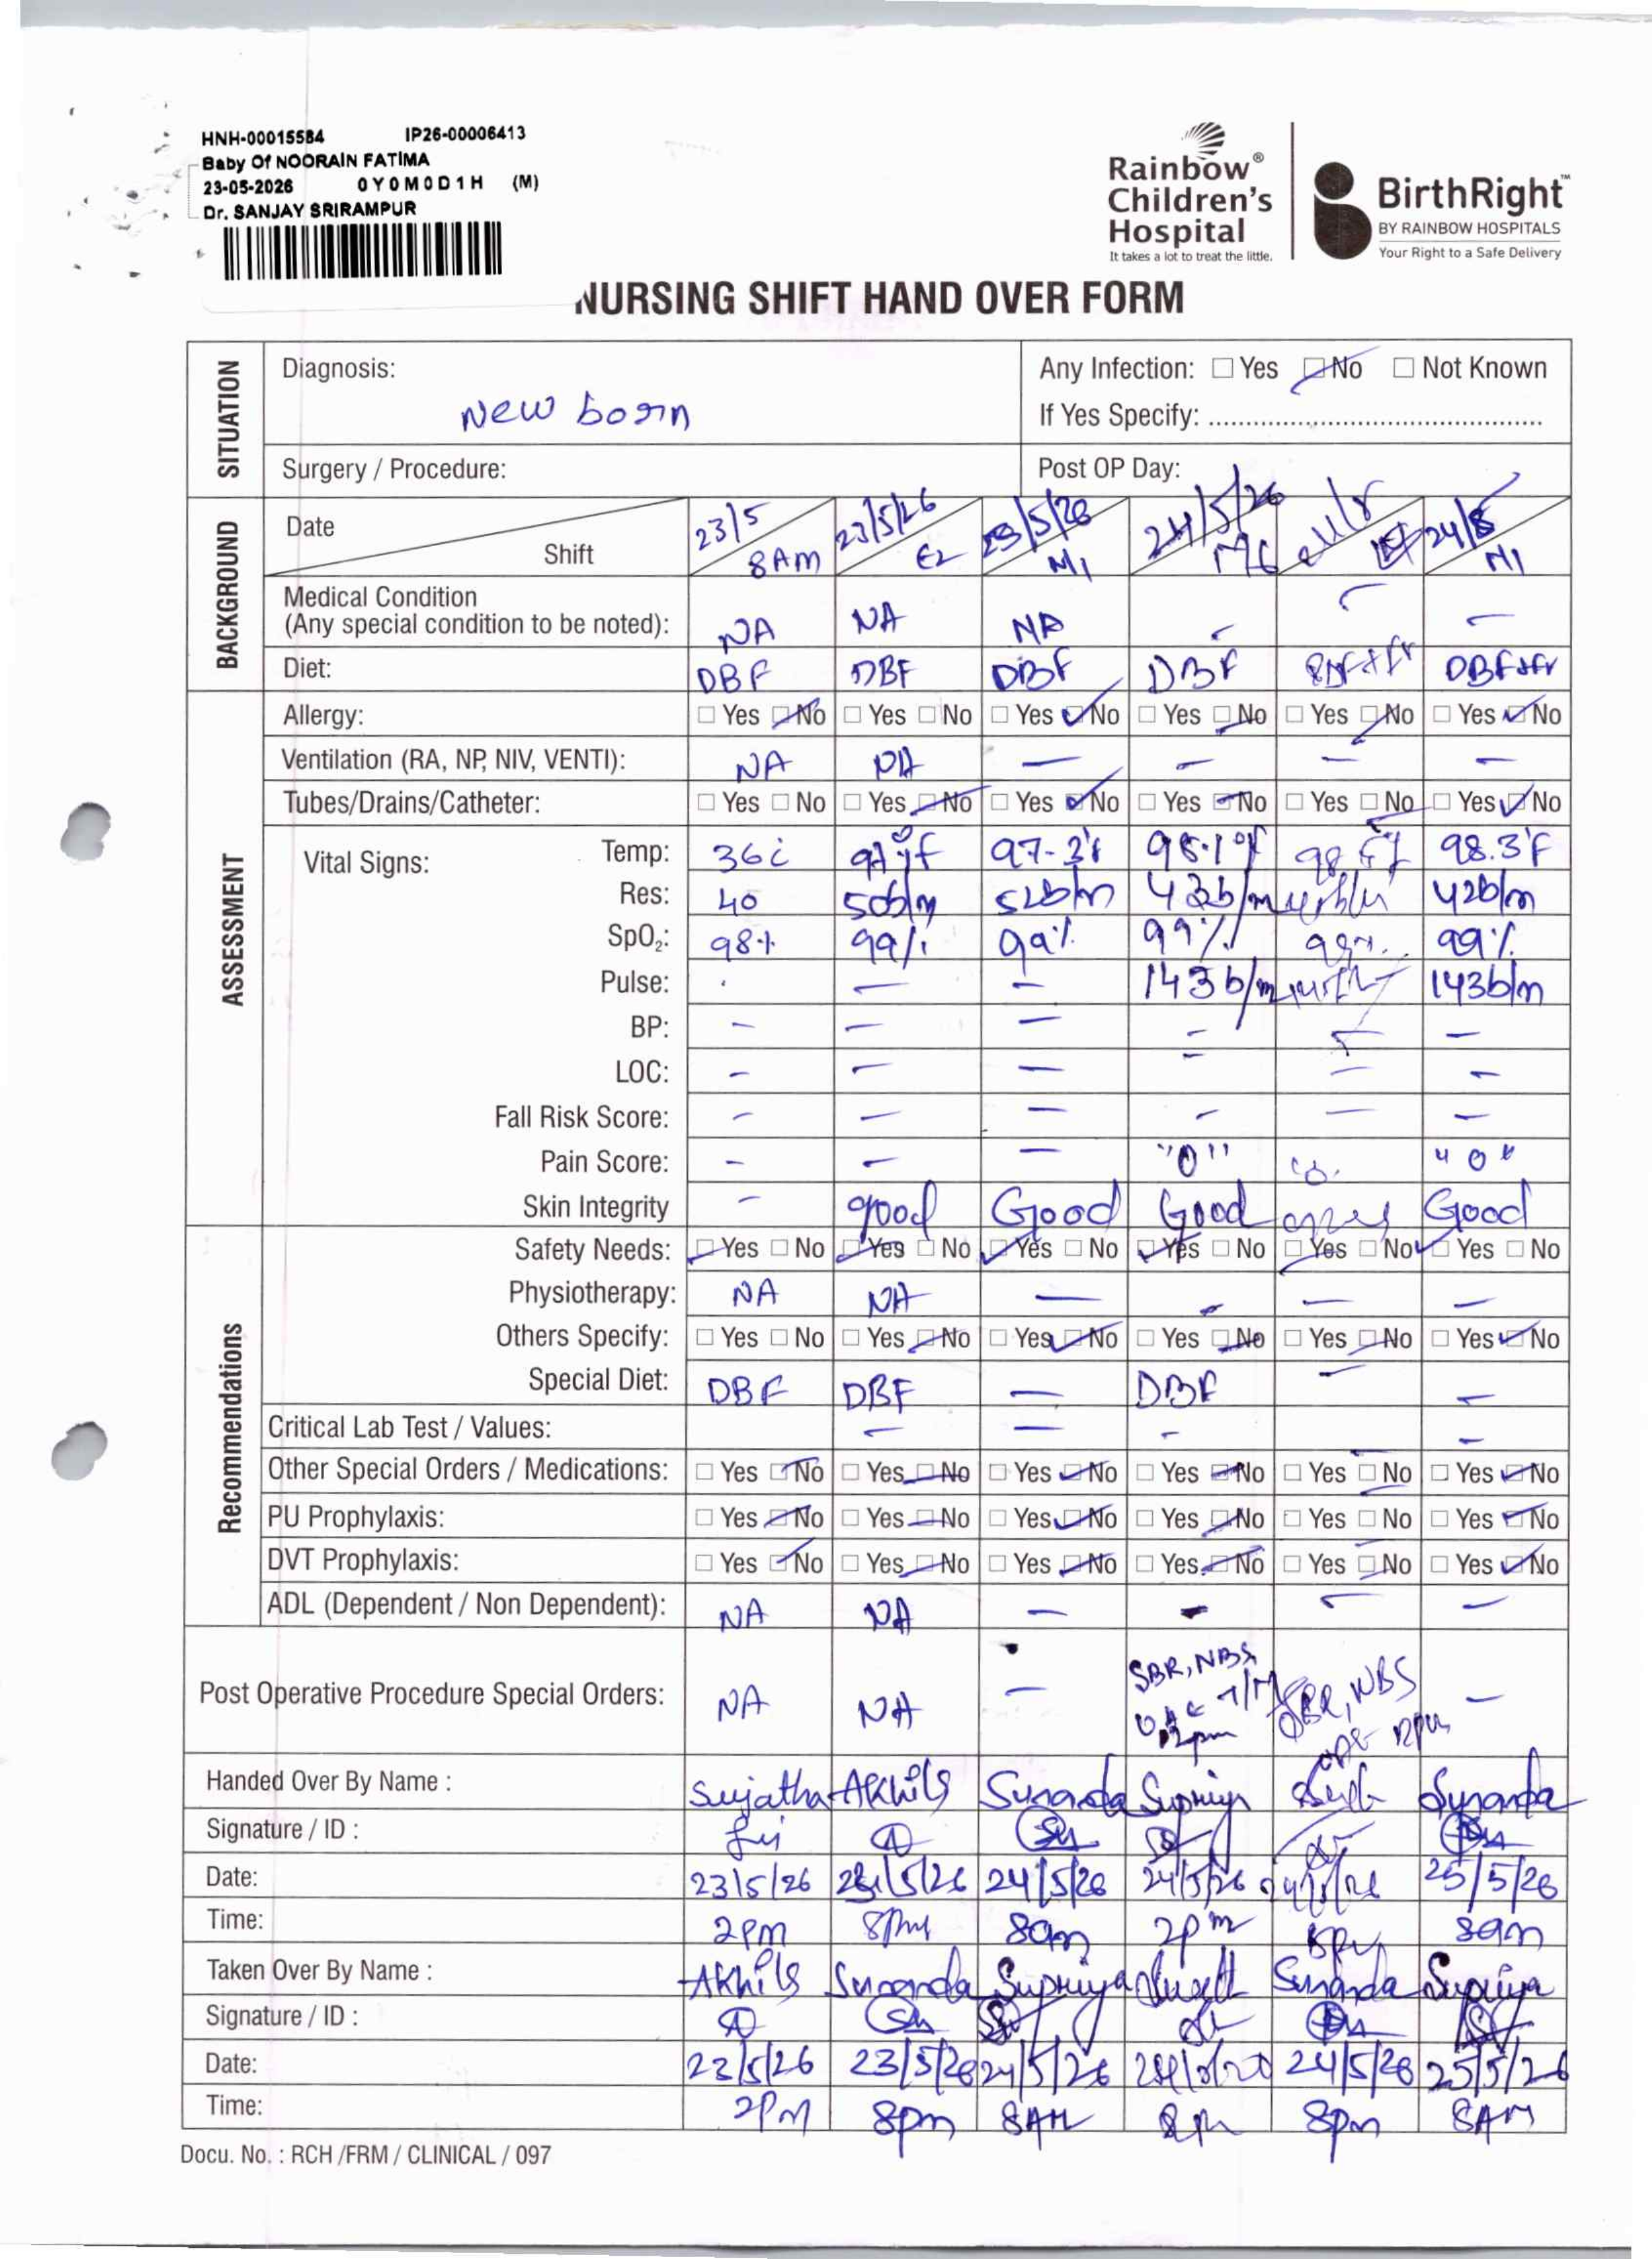 HNH-00015584 IP26-00006413
Baby Of NOORAIN FATIMA
23-05-2026 0Y0M0D1H (M)
Dr. SANJAY SRIRAMPUR
Rainbow®
Children's
Hospital
It takes a lot to treat the little.
BirthRight™
BY RAINBOW HOSPITALS
Your Right to a Safe Delivery
NURSING SHIFT HAND OVER FORM
SITUATION
Diagnosis: Any Infection: Yes No Not Known
New born If Yes Specify:
Surgery / Procedure: Post OP Day:
BACKGROUND
Date 23/5 23/5/26 23/5/26 24/5/26 24/5
Shift 8AM E2 N1 M6 N1
Medical Condition
(Any special condition to be noted): NA NA NA - - -
Diet: DBF DBF DBF DBF DBF+fr
ASSESSMENT
Allergy: Yes No Yes No Yes No Yes No Yes No Yes No
Ventilation (RA, NP, NIV, VENTI): NA NA - - - -
Tubes/Drains/Catheter: Yes No Yes No Yes No Yes No Yes No Yes No
Vital Signs: Temp: 36 98.3°F
Res: 40 50b/m 52b/m 43b/m 42b/m
SpO₂: 98% 99% 99% 99% 99%
Pulse: - - 143b/m 143b/m
BP: - - - - - -
LOC: - - - - - -
Fall Risk Score: - - - - - -
Pain Score: - - - "0" "0"
Skin Integrity - good Good Good Good
Recommendations
Safety Needs: Yes No Yes No Yes No Yes No Yes No Yes No
Physiotherapy: NA NA - - - -
Others Specify: Yes No Yes No Yes No Yes No Yes No Yes No
Special Diet: DBF DBF - DBF - -
Critical Lab Test / Values: - - - -
Other Special Orders / Medications: Yes No Yes No Yes No Yes No Yes No Yes No
PU Prophylaxis: Yes No Yes No Yes No Yes No Yes No Yes No
DVT Prophylaxis: Yes No Yes No Yes No Yes No Yes No Yes No
ADL (Dependent / Non Dependent): NA NA - - - -
Post Operative Procedure Special Orders: NA NA - SBR, NBS SBR, NBS -
Handed Over By Name : Sujatha Akhila Sunanda Supriya Sunanda
Signature / ID :
Date: 23/5/26 23/5/26 24/5/26 24/5/26 25/5/26
Time: 2PM 8PM 8am 2pm 8pm 8am
Taken Over By Name : Akhila Sunanda Supriya Sunanda Supriya
Signature / ID :
Date: 23/5/26 23/5/26 24/5/26 24/5/26 25/5/26
Time: 2PM 8pm 8AM 8pm 8AM
Docu. No. : RCH /FRM / CLINICAL / 097